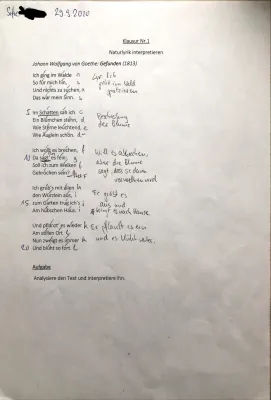 29.9.2020
Klausur Nr.1
Naturlyrik interpretieren
Johann Wolfgang von Goethe: Gefunden (1813)
Ich ging im Walde
So für mich hin,
Und nichts zu suchen,
Das war mein Sinn.
Lyr. Ich
geht im Wald
spazieren
5 Im Schatten sah ich
Ein Blümchen stehn,
Wie Sterne leuchtend,
Wie Äuglein schön.
Beschreibung
der Blume
Ich wollt es brechen,
10 Da sagt es fein:
Soll ich zum Welken
Gebrochen sein?
Will es abbrechen,
aber die Blume
sagt, dass sie dann
Ich grub's mit allen
den Würzlein aus,
15 zum Garten trug ich's
Am hübschen Haus.
Er gräbt es
aus und
bringt es nach Hause.
Und pflanzt es wieder
Am stillen Ort;
Nun zweigt es immer
20 Und blüht so fort.
Er pflanzt es ein
und es blüht weiter.
Aufgabe
Analysiere den Text und interpretiere ihn.